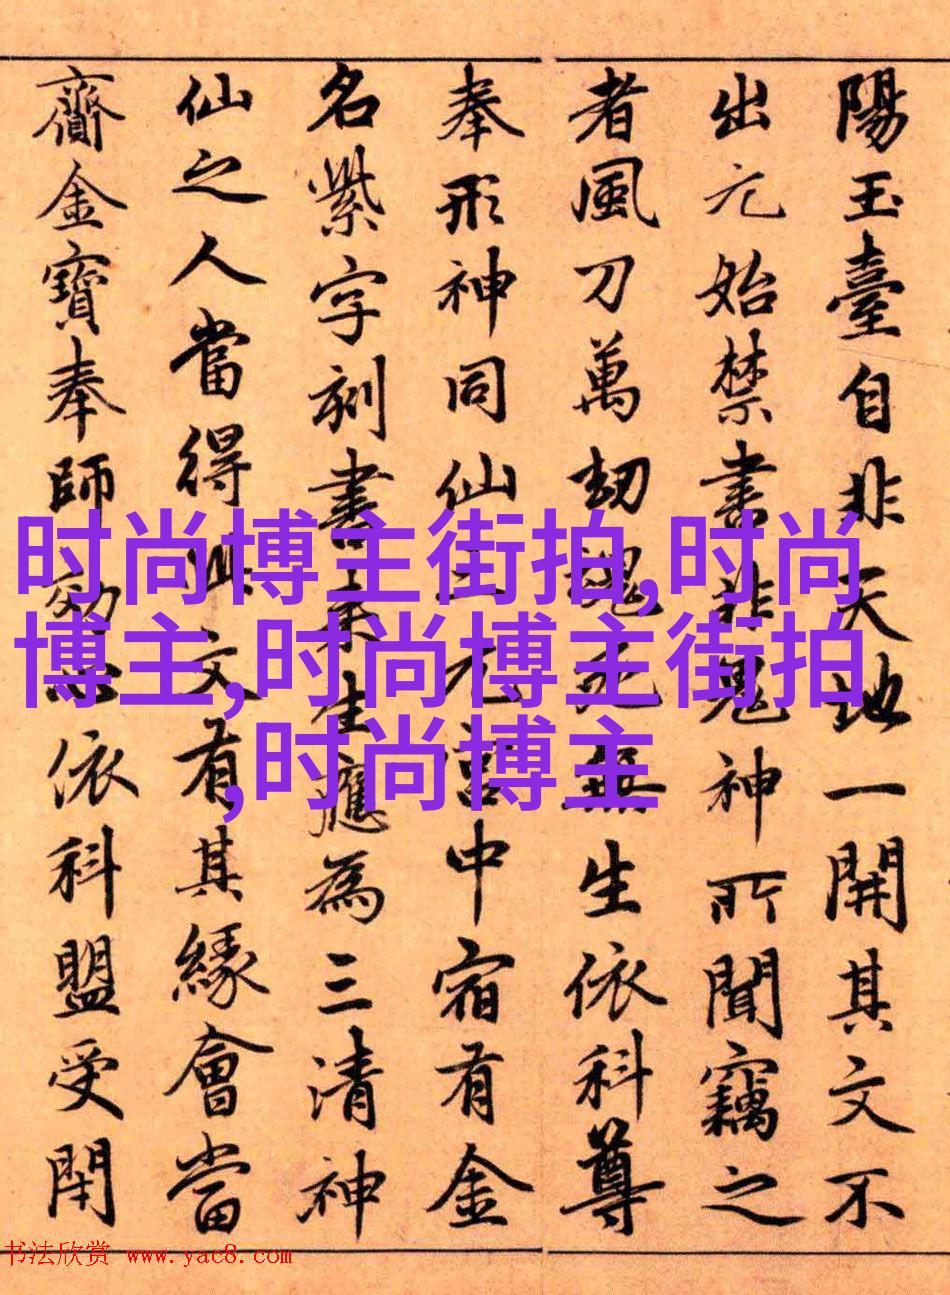 陽玉臺自非天地一開其文不
出元始禁書非鬼神所聞竊之
者風刀萬劫魂死無生依科尊
奉形神同仙宮中宿有金
名紫字刻書来生應為三清神
仙之人當得此文有其緣會當
齎金寶奉師効心依科盟受閇
时尚博主街拍,时尚
博主,时尚博主街拍
,时尚博主
书法欣赏 www.yac8.com